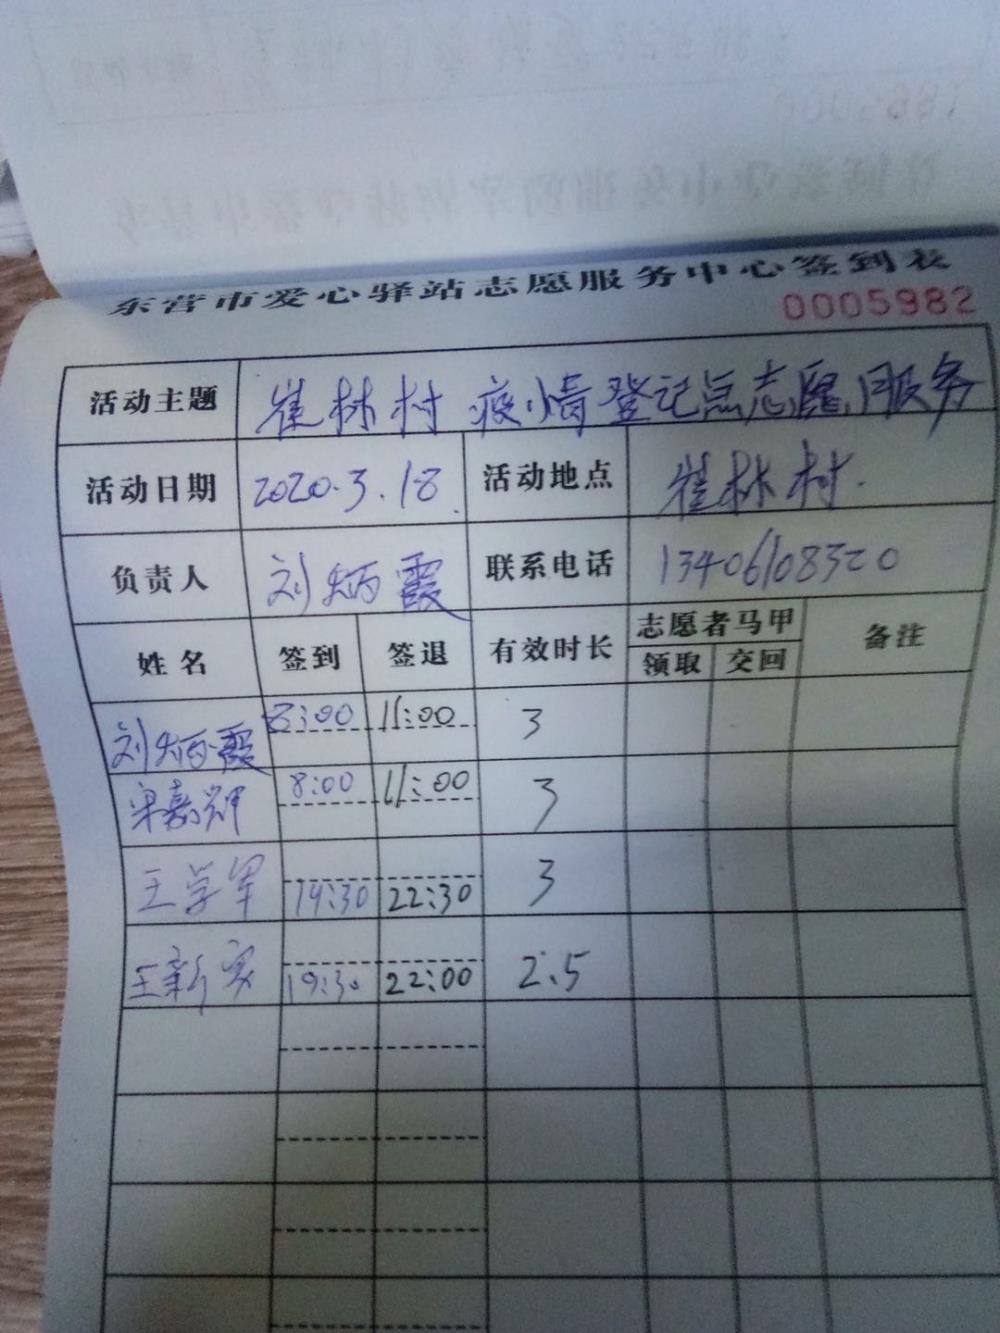 东营市爱心驿站志愿服务中心签到表
0005982
活动主题 崔林村疫情登记点志愿服务
活动日期 2020.3.18. 活动地点 崔林村.
负责人 刘炳霞 联系电话 13406108320
姓名 签到 签退 有效时长 志愿者马甲 备注
领取 交回
刘炳霞 8:00 11:00 3
宋嘉辉 8:00 11:00 3
王学军 19:30 22:30 3
王新 19:30 22:00 2.5